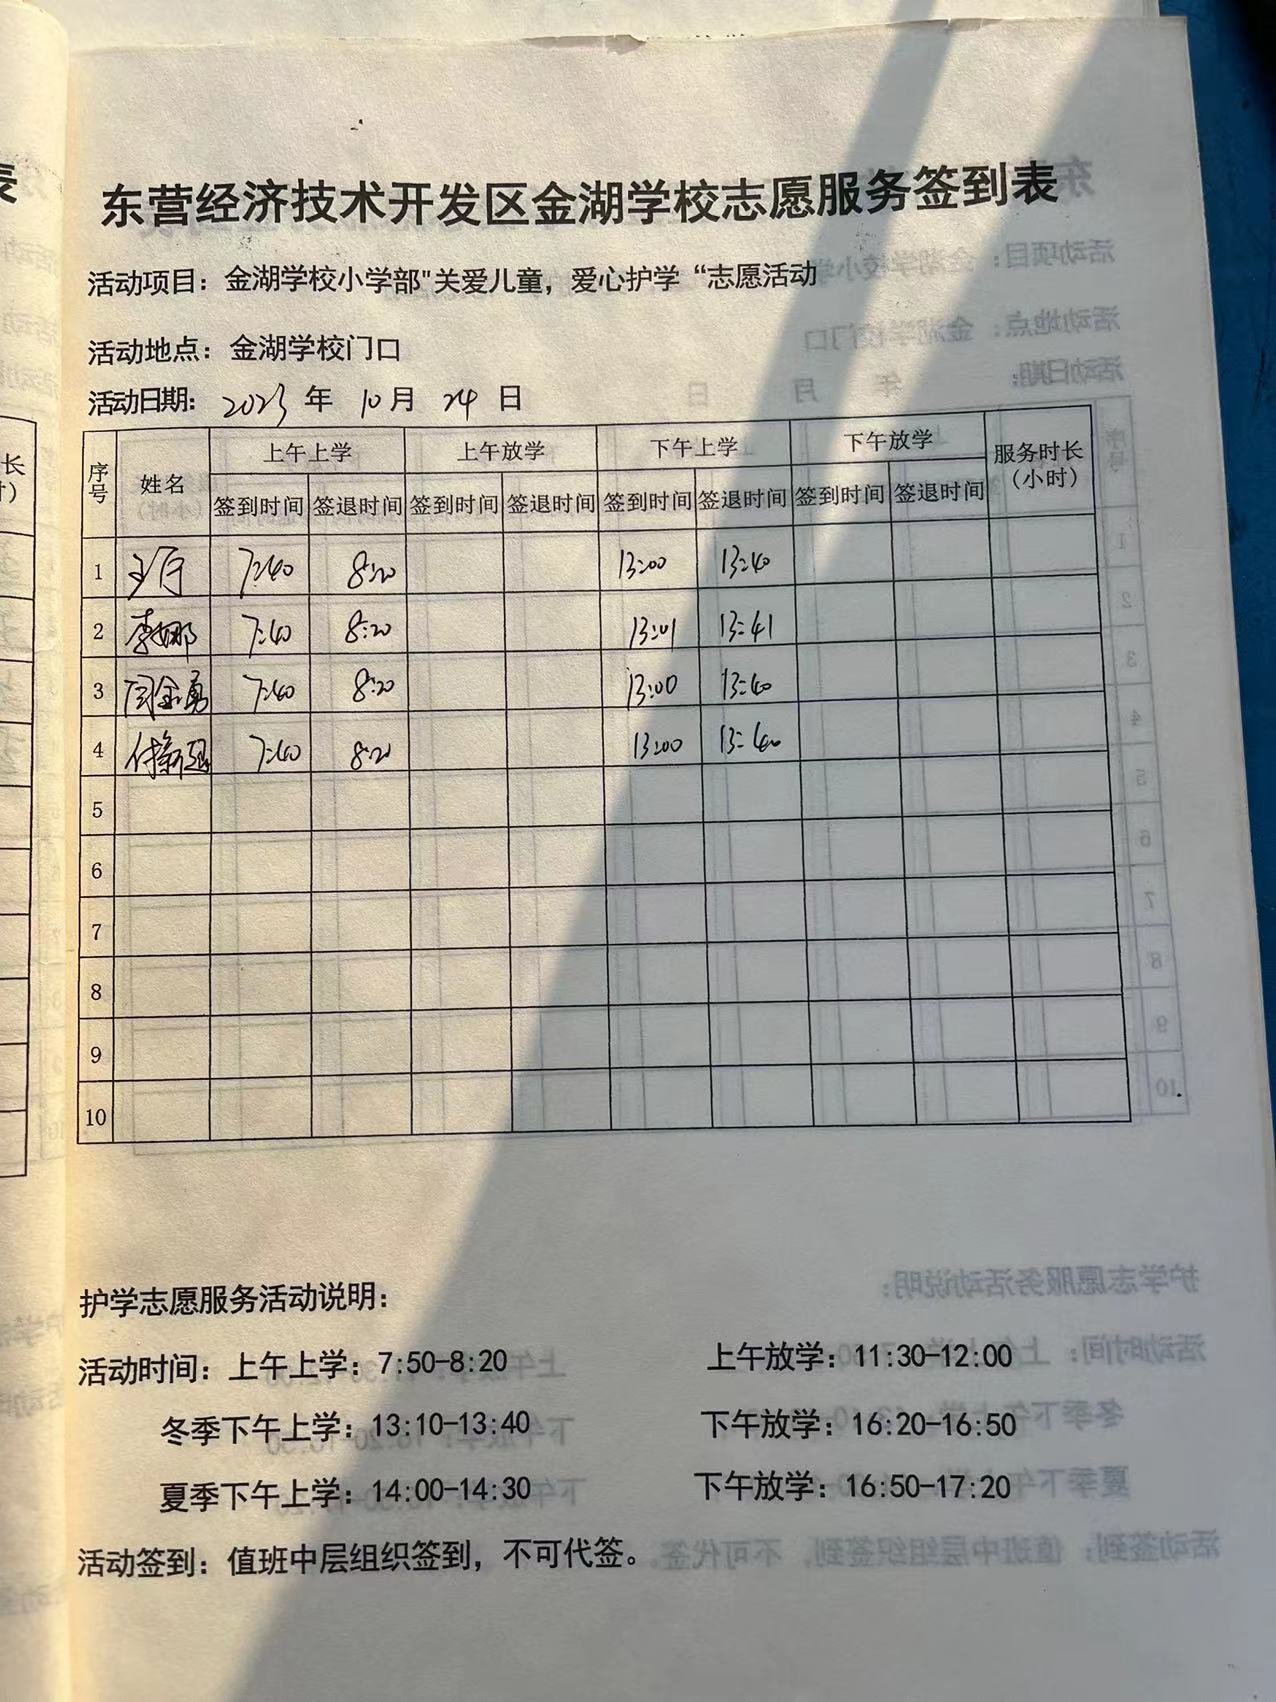 东营经济技术开发区金湖学校志愿服务签到表
活动项目：金湖学校小学部"关爱儿童，爱心护学“志愿活动
活动地点：金湖学校门口
活动日期： 2023 年 10 月 24 日
序号 姓名 上午上学 上午放学 下午上学 下午放学 服务时长（小时）
签到时间 签退时间 签到时间 签退时间 签到时间 签退时间 签到时间 签退时间
1 7:40 8:20 13:00 13:40
2 李娜 7:40 8:20 13:01 13:41
3 7:40 8:20 13:00 13:40
4 7:40 8:20 13:00 13:40
5
6
7
8
9
10
护学志愿服务活动说明：
活动时间：上午上学：7:50-8:20 上午放学：11:30-12:00
冬季下午上学：13:10-13:40 下午放学：16:20-16:50
夏季下午上学：14:00-14:30 下午放学：16:50-17:20
活动签到：值班中层组织签到，不可代签。